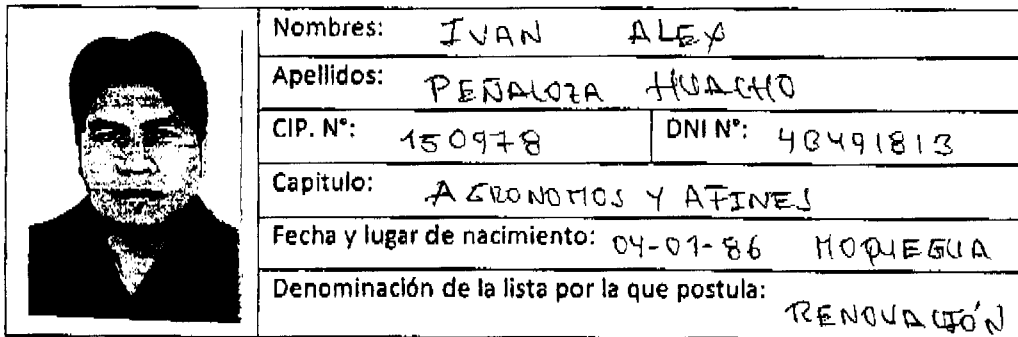 Nombres: IVAN ALEX
Apellidos: PEÑALOZA HUACHO
CIP. N°: 150978 DNI N°: 43491813
Capitulo: AGRONOMOS Y AFINES
Fecha y lugar de nacimiento: 04-01-86 MOQUEGUA
Denominación de la lista por la que postula: RENOVACIÓN